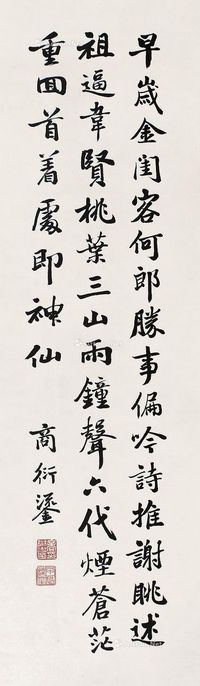 早歲金閨客何郎勝事偏吟詩推謝眺述
祖逼韋賢桃葉三山雨鐘聲六代煙蒼茫
重回首着處即神仙
商衍鎏